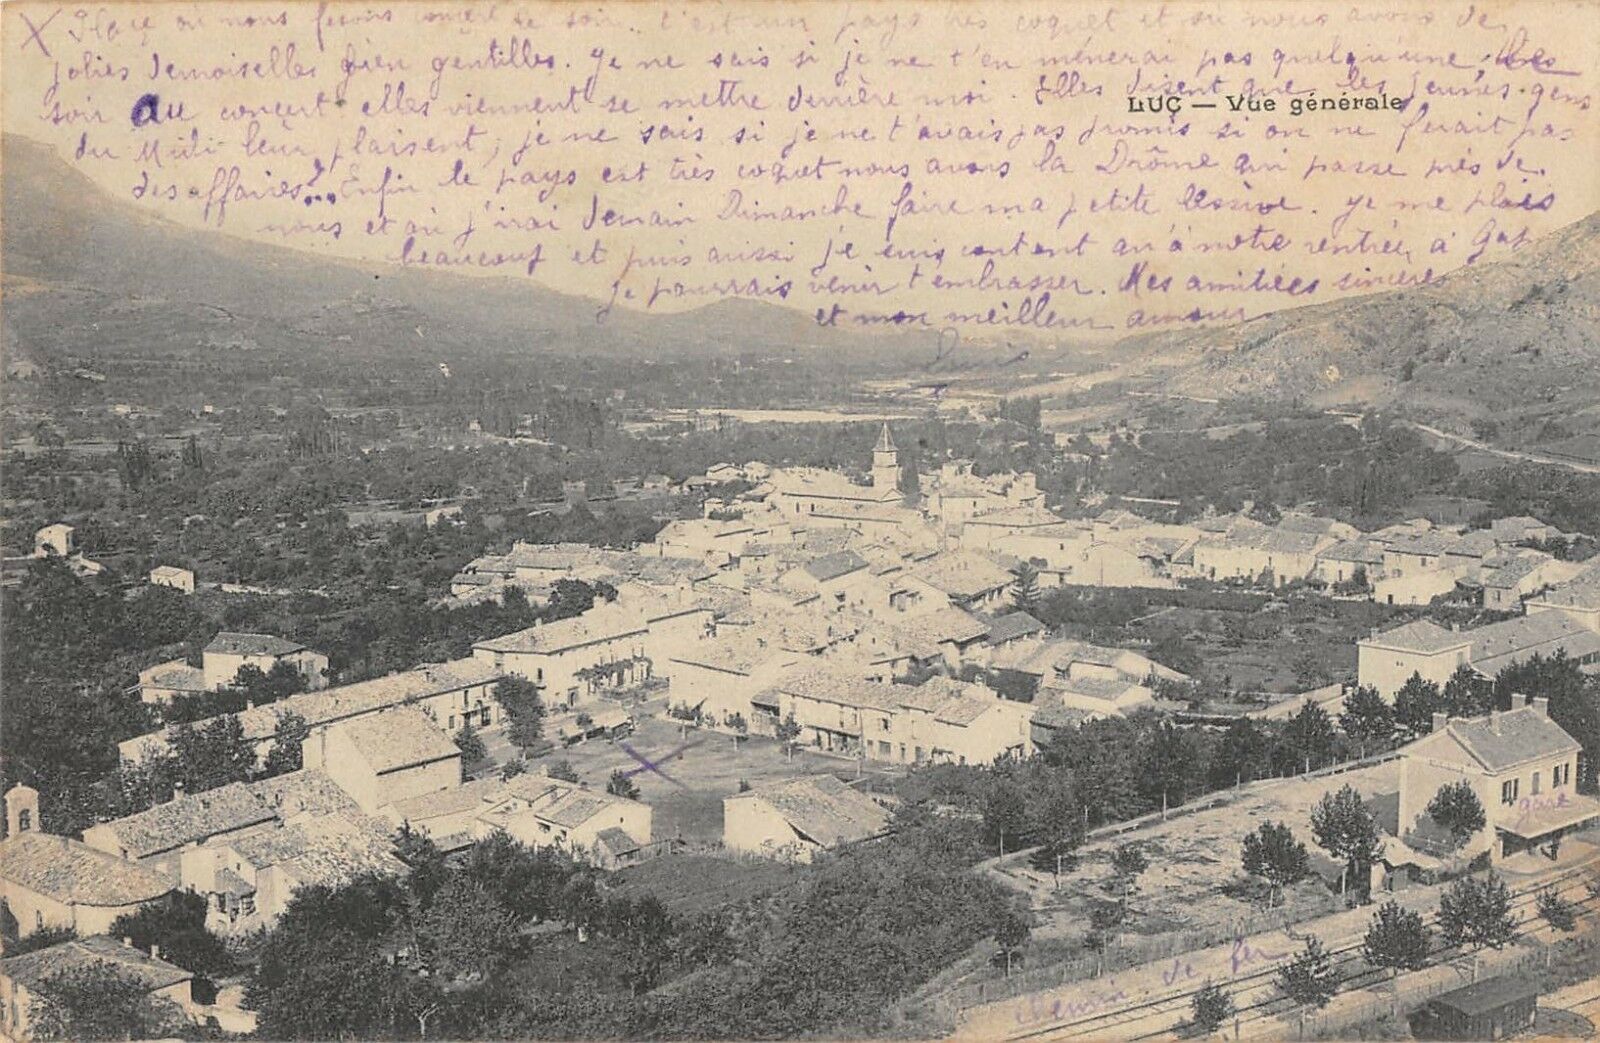 X Place où nous ferons concert ce soir.. c'est un pays très coquet et où nous avons de
jolies demoiselles bien gentilles. Je ne sais si je ne t'en mènerai pas quelqu'une;
soir au concert elles viennent se mettre derrière moi. Elles disent que les jeunes gens
LUC — Vue générale
du Midi leur plaisent; je ne sais si je ne t'avais pas promis si on ne ferait pas
des affaires?... Enfin le pays est très coquet nous avons la Drôme qui passe près de
nous et où j'irai demain Dimanche faire ma petite lessive. Je me plais
beaucoup et puis aussi je suis content qu'à notre rentrée à Gap
je pourrais venir t'embrasser. Mes amitiées sincères
et mon meilleur amour
X
gare
chemin de fer